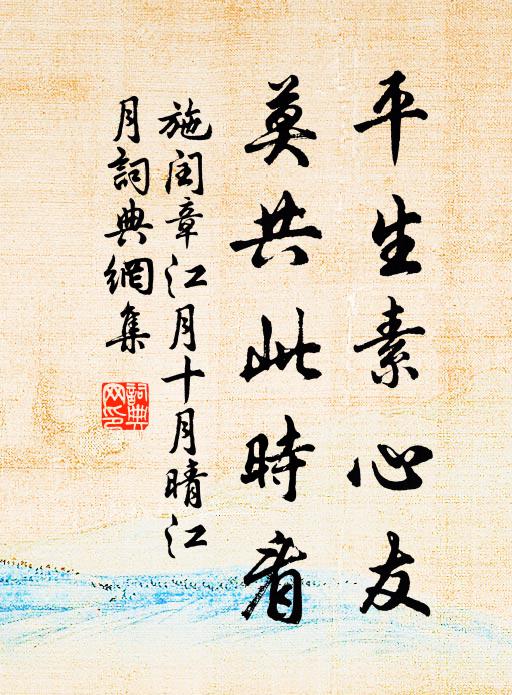 平生素心友
莫共此時看
施閏章江月十月晴江
月詞典網集
詞典
网印